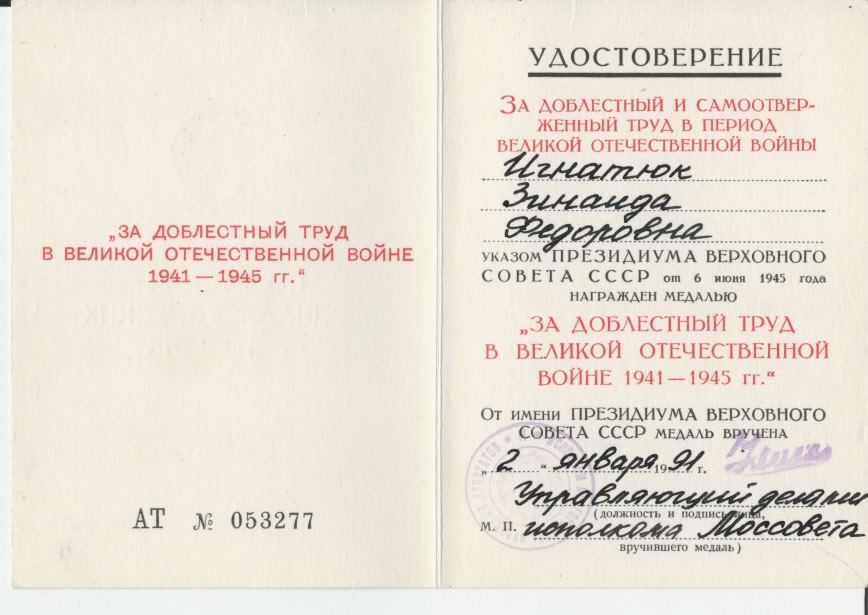 „ЗА ДОБЛЕСТНЫЙ ТРУД
В ВЕЛИКОЙ ОТЕЧЕСТВЕННОЙ ВОЙНЕ
1941—1945 гг.“
АТ № 053277
УДОСТОВЕРЕНИЕ
ЗА ДОБЛЕСТНЫЙ И САМООТВЕР-
ЖЕННЫЙ ТРУД В ПЕРИОД
ВЕЛИКОЙ ОТЕЧЕСТВЕННОЙ ВОЙНЫ
Игнатюк
Зинаида
Федоровна
УКАЗОМ ПРЕЗИДИУМА ВЕРХОВНОГО
СОВЕТА СССР от 6 июня 1945 года
НАГРАЖДЕН МЕДАЛЬЮ
„ЗА ДОБЛЕСТНЫЙ ТРУД
В ВЕЛИКОЙ ОТЕЧЕСТВЕННОЙ
ВОЙНЕ 1941—1945 гг.“
ОТ ИМЕНИ ПРЕЗИДИУМА ВЕРХОВНОГО
СОВЕТА СССР МЕДАЛЬ ВРУЧЕНА
„2“ января 1991 г.
Управляющий делами
(должность и подпись лица,
М. П. исполкома Моссовета
вручившего медаль)